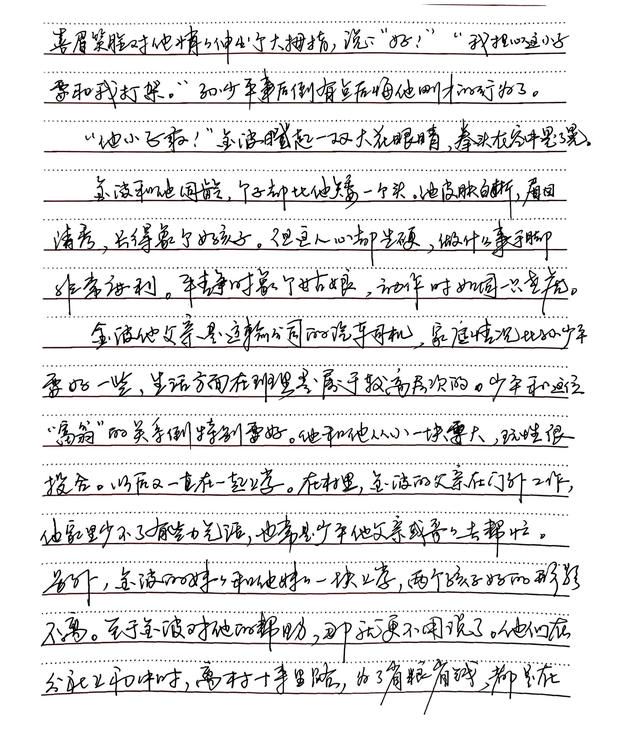 喜眉笑脸对他悄悄伸出个大拇指，说："好！""我担心这小子
要和我打架。"孙少平事后倒有点后悔他刚才的行为了。
"他小子敢！"金波瞪起一双大花眼睛，拳头在空中晃了晃。
金波和他同龄，个子却比他矮一个头。他皮肤白晰，眉目
清秀，长得象个好孩子。但这人心却生硬，做什么事手脚
非常利。平静时象个姑娘，动作时如同一只老虎。
金波他父亲是运输公司的汽车司机，家庭情况比孙少平
要好一些，生活方面在班里是属于较高层次的。少平和这位
"富翁"的关系倒特别要好。他和他从小一块耍大，玩性很
投合。以后又一直在一起上学。在村里，金波的父亲在门外工作，
他家里少不了有些力气活，也常是少平他父亲或哥哥去帮忙。
另外，金波的妹妹和他妹妹一块上学，两个孩子好的形影
不离。至于金波对他的帮助，那就更不用说了。他们在
公社上初中时，离村十来里路，为了省粮省钱，都是在